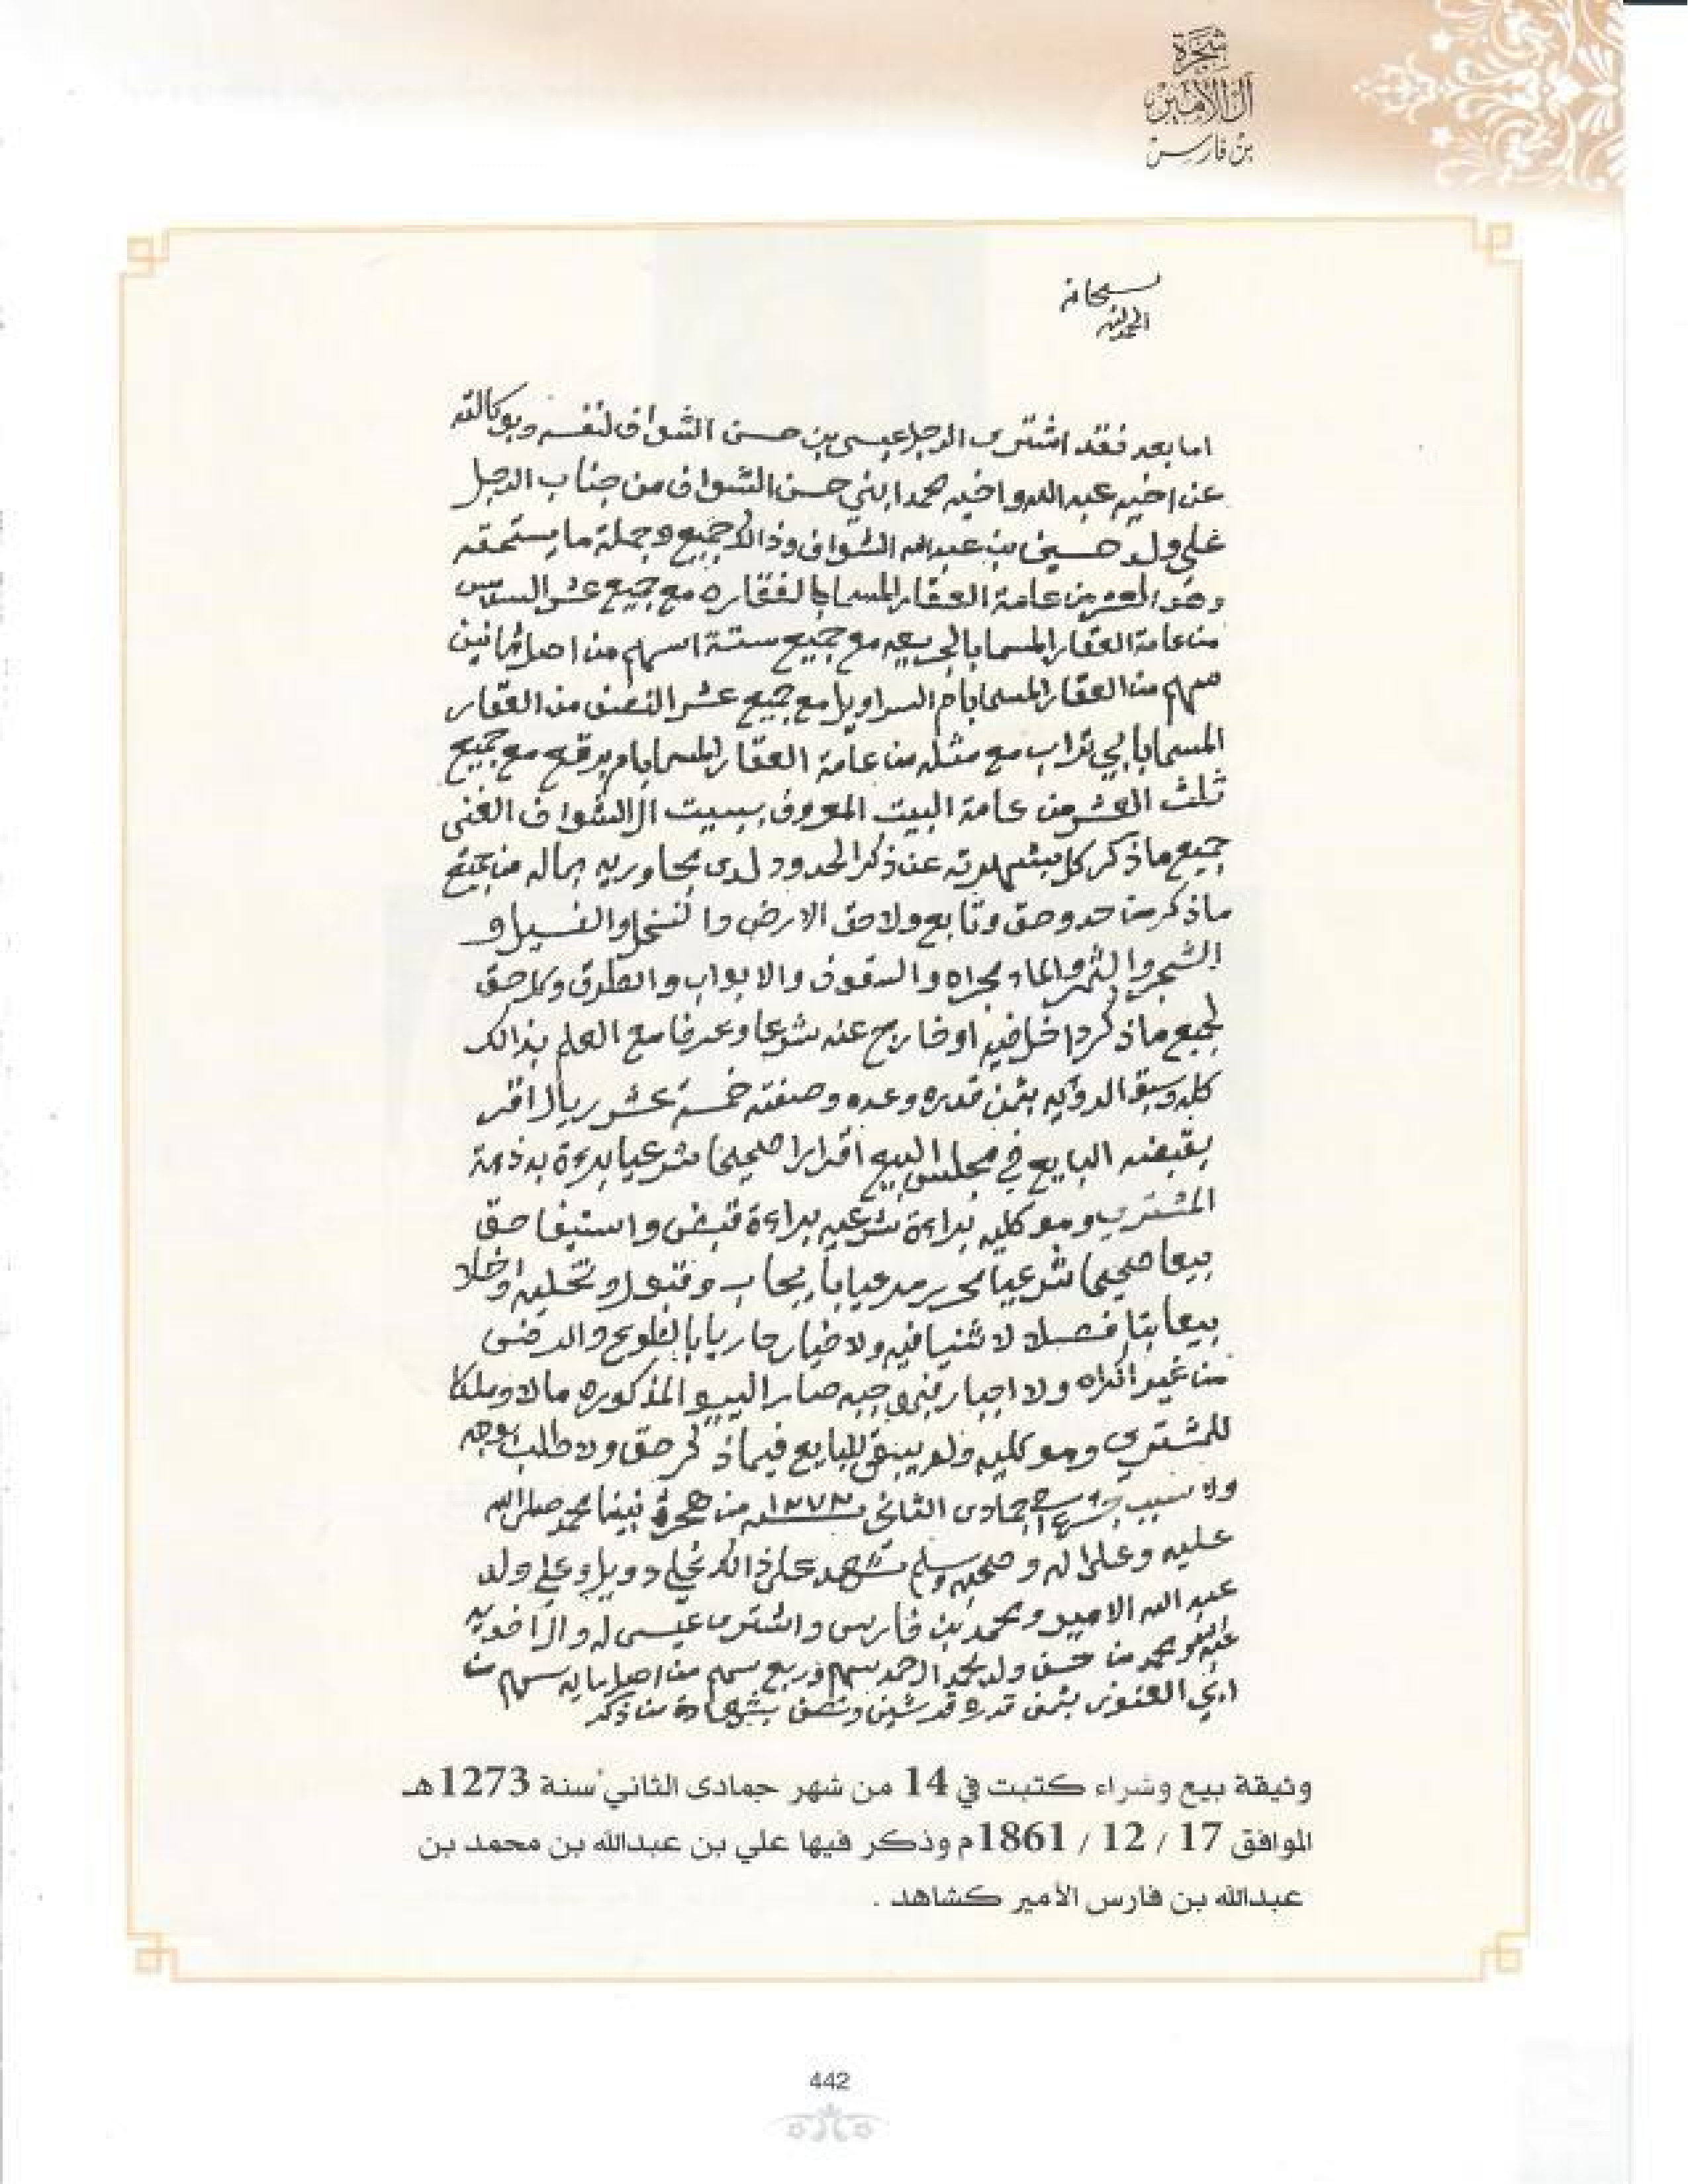 شجرة
آل الأمير
بن فارس
سبحانه
الحمد لله
اما بعد فقد اشترى الرجل عيسى بن حسن الشواف لنفسه وبوكالته
عن اخيه عبد الله واخيه محمد ابني حسن الشواف من جناب الرجل
علي ولد حسين بن عبد الله الشواف وذالك جميع وجملة ما يستحقه
وهو العشر من عامة العقار المسما بالفقاره مع جميع عشر السدس
من عامة العقار المسما مع جميع ستة اسهم من اصل ثمانين
سهم من العقار المسما بام السراويل مع جميع عشر النصف من العقار
المسما بابي تراب مع مثله من عامة العقار المسما بام برقع مع جميع
ثلث العشر من عامة البيت المعروف ببيت ال الشواف الغني
جميع ما ذكر كل بشهرته عن ذكر الحدود لدى مجاوريه بماله من جميع
ماذكر من حد وحق وتابع ولاحق الارض والنخل والفسيل و
الشجر والثمر والماء ومجراه والسقوف والابواب والطرق وكل حق
لجميع ماذكر داخل فيه او خارج عنه شرعا وعرفا مع العلم بذالك
كله وسبق الرؤيه بثمن قدره وعده وصفته خمسة عشر ريال اقر
بقبضه البايع في مجلس البيع اقرارا صحيحا شرعيا برءة به ذمة
المشتري وموكليه براءة شرعيه براءة قبض واستيفا حق
بيعا صحيحا شرعيا بايجاب وقبول وتخليه
بيعا بتا فصلا لا ثنيا فيه ولا خيار جاريا بالطوع والرضى
من غير اكراه ولا اجبار صار المذكوره مالا وملكا
للمشتري وموكليه ولم يبق للبايع فيما ذكر حق ولا طلب بوجه
ولا سبب جمادى الثاني سنه ١٢٧٣ من هجرة نبينا محمد صلى الله
عليه وعلى اله وصحبه وسلم شهد على ذالك علي دويل وعلي ولد
عبد الله الامير ومحمد بن فارس واشترى عيسى له والى اخويه
عبد الله ومحمد من حسن ولد سهم وربع سهم من اصل مايه سهم من
بثمن قدره قرشين ونصف بشهادة من ذكر
وثيقة بيع وشراء كتبت في 14 من شهر جمادى الثاني سنة 1273هـ
الموافق 17 / 12 / 1861م وذكر فيها علي بن عبدالله بن محمد بن
عبدالله بن فارس الأمير كشاهد .
442